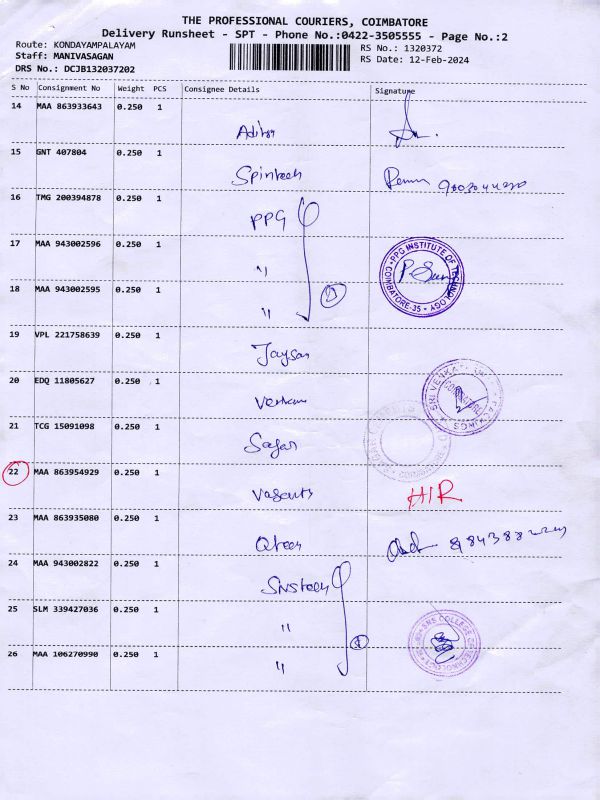 THE PROFESSIONAL COURIERS, COIMBATORE
Delivery Runsheet - SPT - Phone No.:0422-3505555 - Page No.:2
Route: KONDAYAMPALAYAM
RS No.: 1320372
Staff: MANIVASAGAN
RS Date: 12-Feb-2024
DRS No.: DCJB132037202
S No Consignment No Weight PCS Consignee Details Signature
14 MAA 863933643 0.250 1
15 GNT 407804 0.250 1
Spintech
16 TMG 200394878 0.250 1
PPG
17 MAA 943002596 0.250 1
"
PPG INSTITUTE OF TECHNOLOGY
COIMBATORE-35
18 MAA 943002595 0.250 1
"
19 VPL 221758639 0.250 1
Jaysan
20 EDQ 11805627 0.250 1
21 TCG 15091098 0.250 1
Sagar
22 MAA 863954929 0.250 1
HIR
23 MAA 863935080 0.250 1
24 MAA 943002822 0.250 1
25 SLM 339427036 0.250 1
"
SNS COLLEGE OF TECHNOLOGY
26 MAA 106270990 0.250 1
"